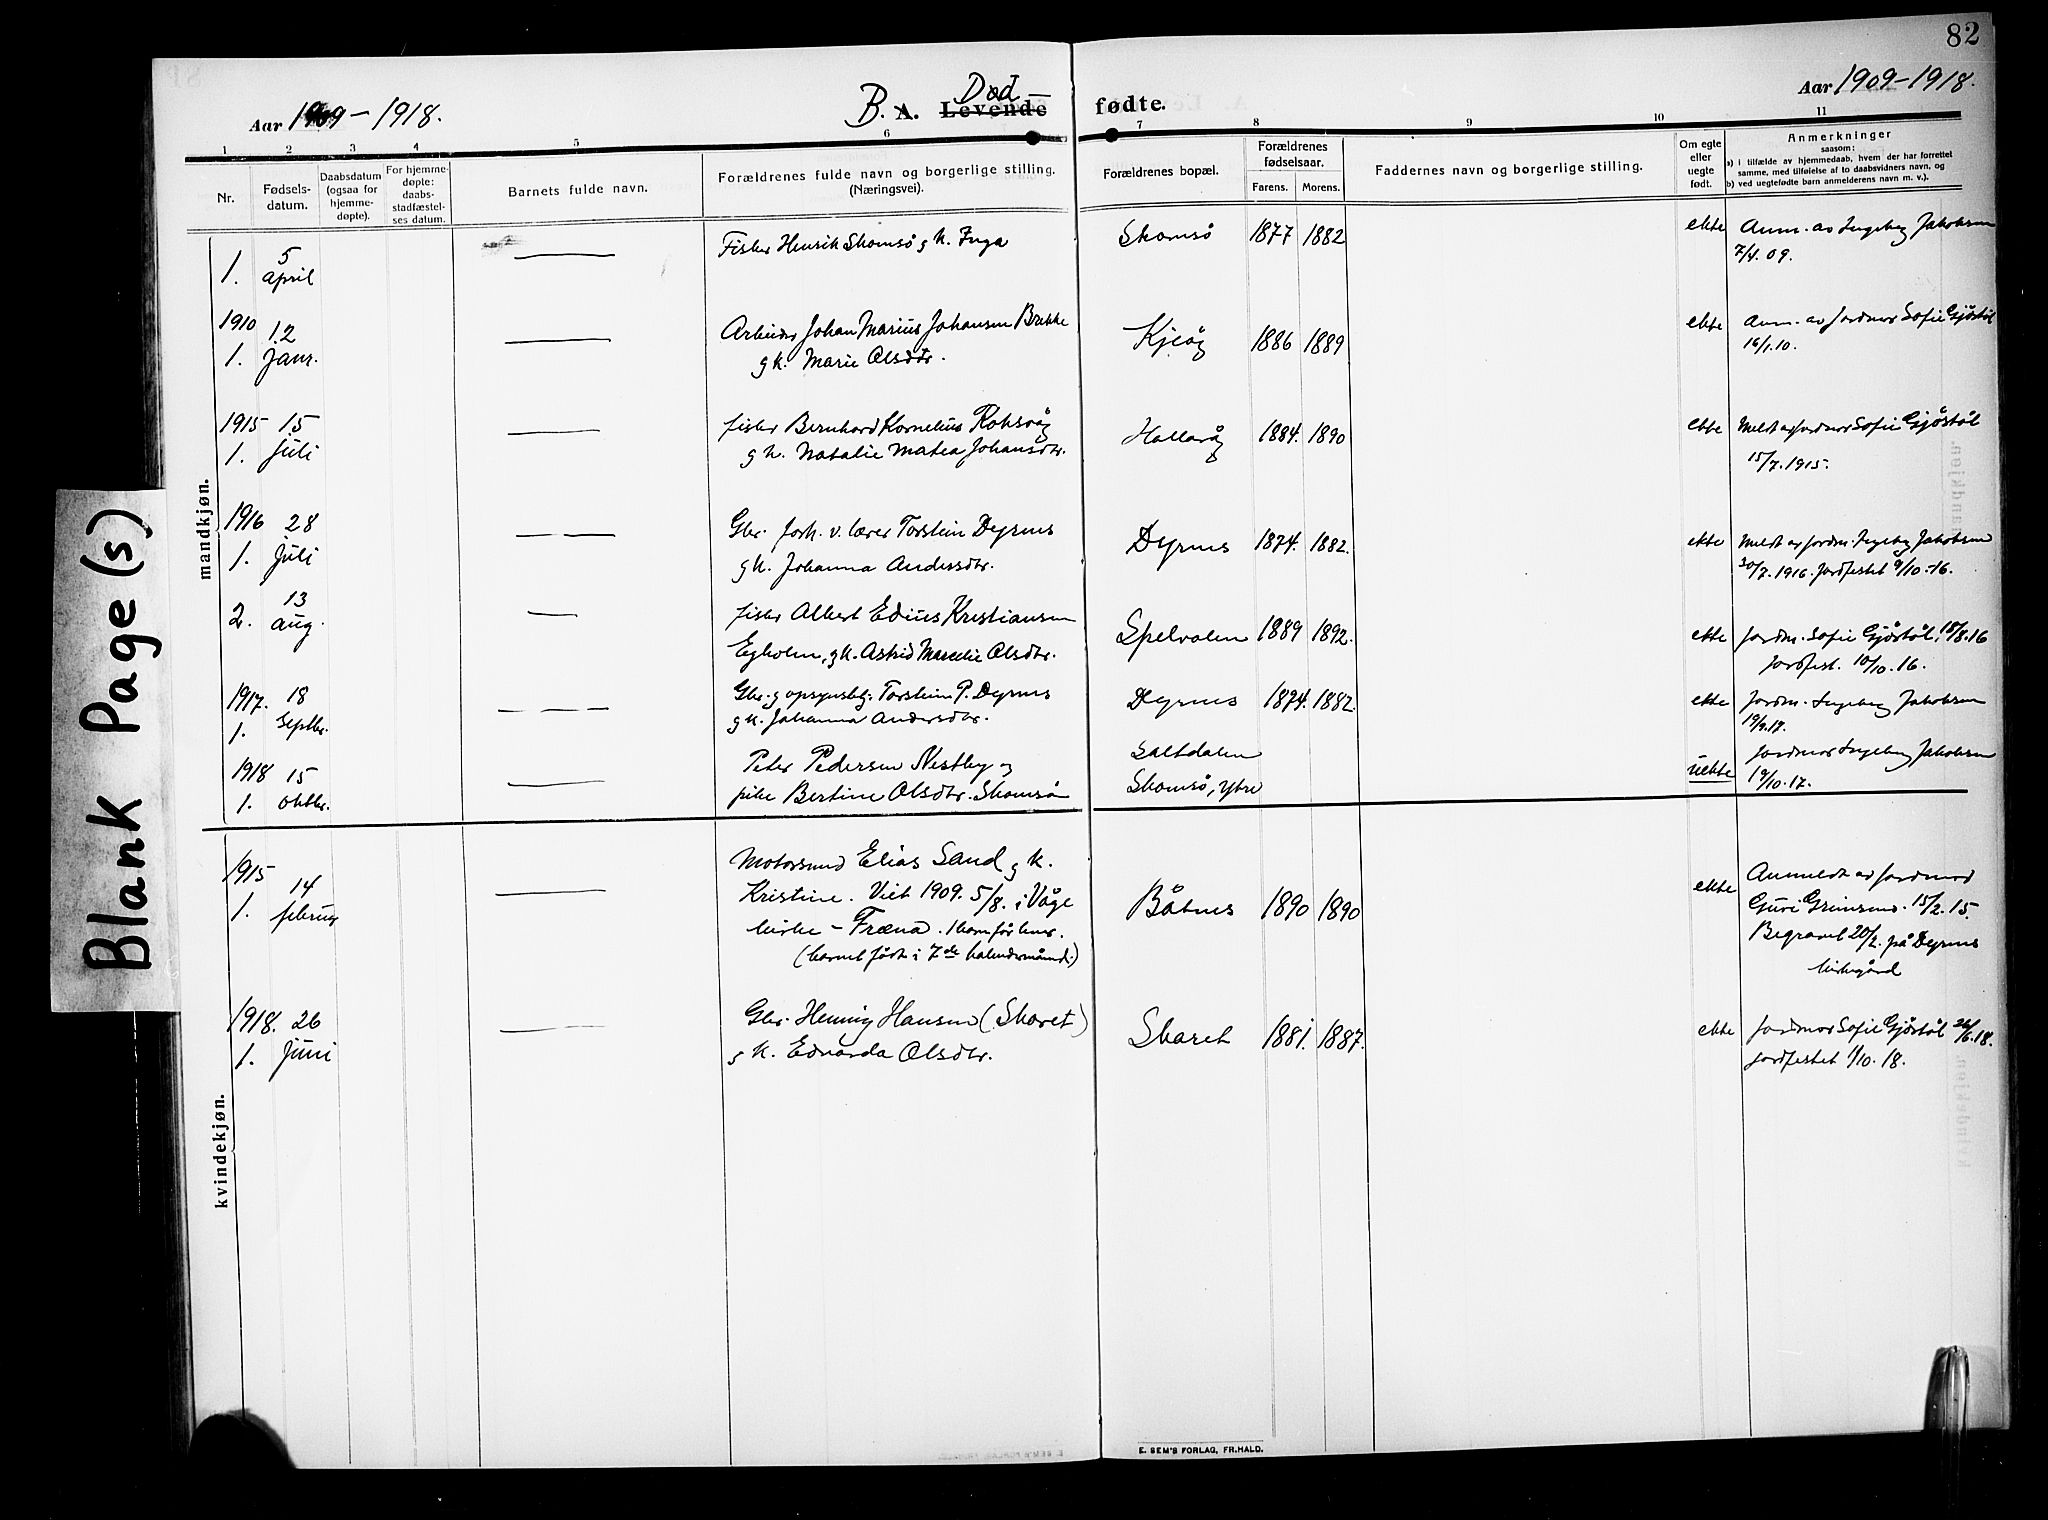 82
Aar 1909-1918.
B. A. Levende Død fødte.
Aar 1909-1918.
1 2 3 4 5 6 7 8 9 10 11
Nr.
Fødsels-
datum.
Daabsdatum
(ogsaa for
hjemme-
døpte).
For hjemme-
døpte:
daabs-
stadfæstel-
ses datum.
Barnets fulde navn.
Forældrenes fulde navn og borgerlige stilling.
(Næringsvei).
Forældrenes bopæl.
Forældrenes
fødselsaar.
Farens. Morens.
Faddernes navn og borgerlige stilling.
Om egte
eller
uegte
født.
Anmerkninger
saasom:
a) i tilfælde av hjemmedaab, hvem der har forrettet
samme, med tilføielse af to daabsvidners navn, og
b) ved uegtefødte barn anmelderens navn m. v.).
mandkjøn.
1. 5 april
Fisker Henrik Skomsø g k. Inga
Skomsø 1877 1882 ekte
Anm. av Ingebg Jakobsen
7/4. 09.
1910
1. 12 Janr.
Arbeider Johan Marius Johansen Brekke
g k. Marie Olsdtr.
Kjeøy 1886 1889 ekte
Anm. av Jordmor Sofie Gjøstøl
16/1.10.
1915
1. 15 Juli
fisker Bernhard Kornelius Roksvåg
g k. Natalie Matea Johansdtr.
1884. 1890 ekte
Meldt av Jordmor Sofie Gjøstøl
15/7.1915.
1916
1. 28 Juli
Gbr. forh. v. lærer Torstein Dyrnes
g k. Johanna Andersdtr.
Dyrnes 1874. 1882. ekte
Meldt av Jordm. Ingebg Jakobsen
30/7.1916. Jordfestet 9/10.-16.
2. 13 aug.
fisker Albert Edius Kristiansen
Egholm, g k. Astrid Marcelie Olsdtr.
Spelvalen 1889 1892. ekte
Jordm. Sofie Gjøstøl, 15/8.16
Jordfest. 10/10.16.
1917.
1. 18 Septbr.
Gbr. g opsynsbetj. Torstein P. Dyrnes
g k. Johanna Andersdtr.
Dyrnes 1874. 1882. ekte
Jordm. Ingebg Jakobsen
19/9.17.
1918
1. 15 oktbr.
Peter Pedersen Nestby og
pike Bertine Olsdtr. Skomsø
Saltdalen
Skomsø, ytre
uekte
Jordmor Ingebg Jakobsen
19/10.17.
kvindekjøn.
1915
1. 14 februar
Motorsmed Elias Sand g k.
Kristine. Viet 1909. 5/8. i Våge
kirke - Fræna. 1 barn før
(barnet født i 7de kalendermåned.)
Båtnes 1890 1890 ekte
Anmeldt av Jordmor
Guri Grimsmo. 15/2.15.
Begravet 20/2. på Dyrnes
kirkegård
1918.
1. 26 Juni
Gbr. Henning Hansen (Skaret)
g k. Edvarda Olsdtr.
Skaret 1881. 1887. ekte
Jordmor Sofie Gjøstøl 26/6.18.
Jordfestet 1/10.18.
E. SEM'S FORLAG, FR.HALD.
Blank Page(s)